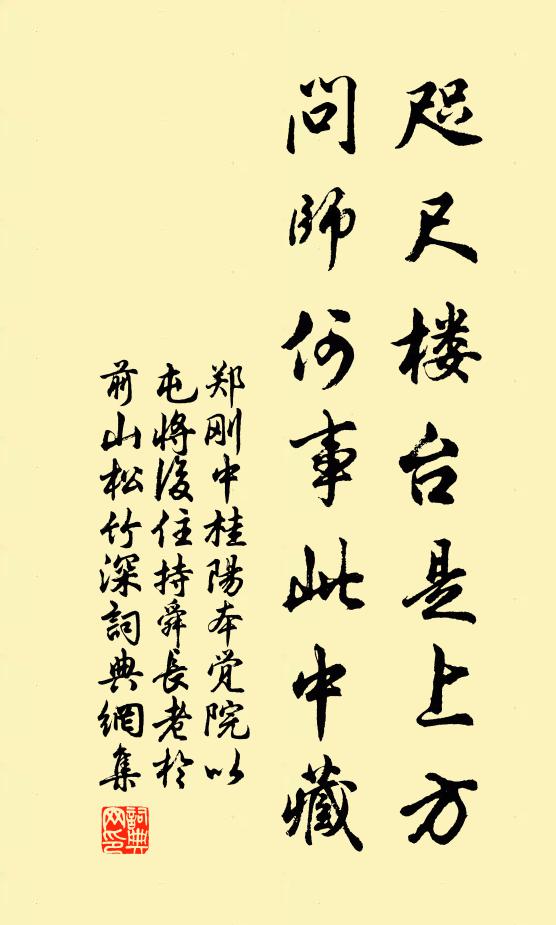 咫尺楼台是上方
问师何事此中藏
郑刚中桂陽本觉院以
屯將後住持舜長老於
前山松竹深詞典網集
詞典
网印